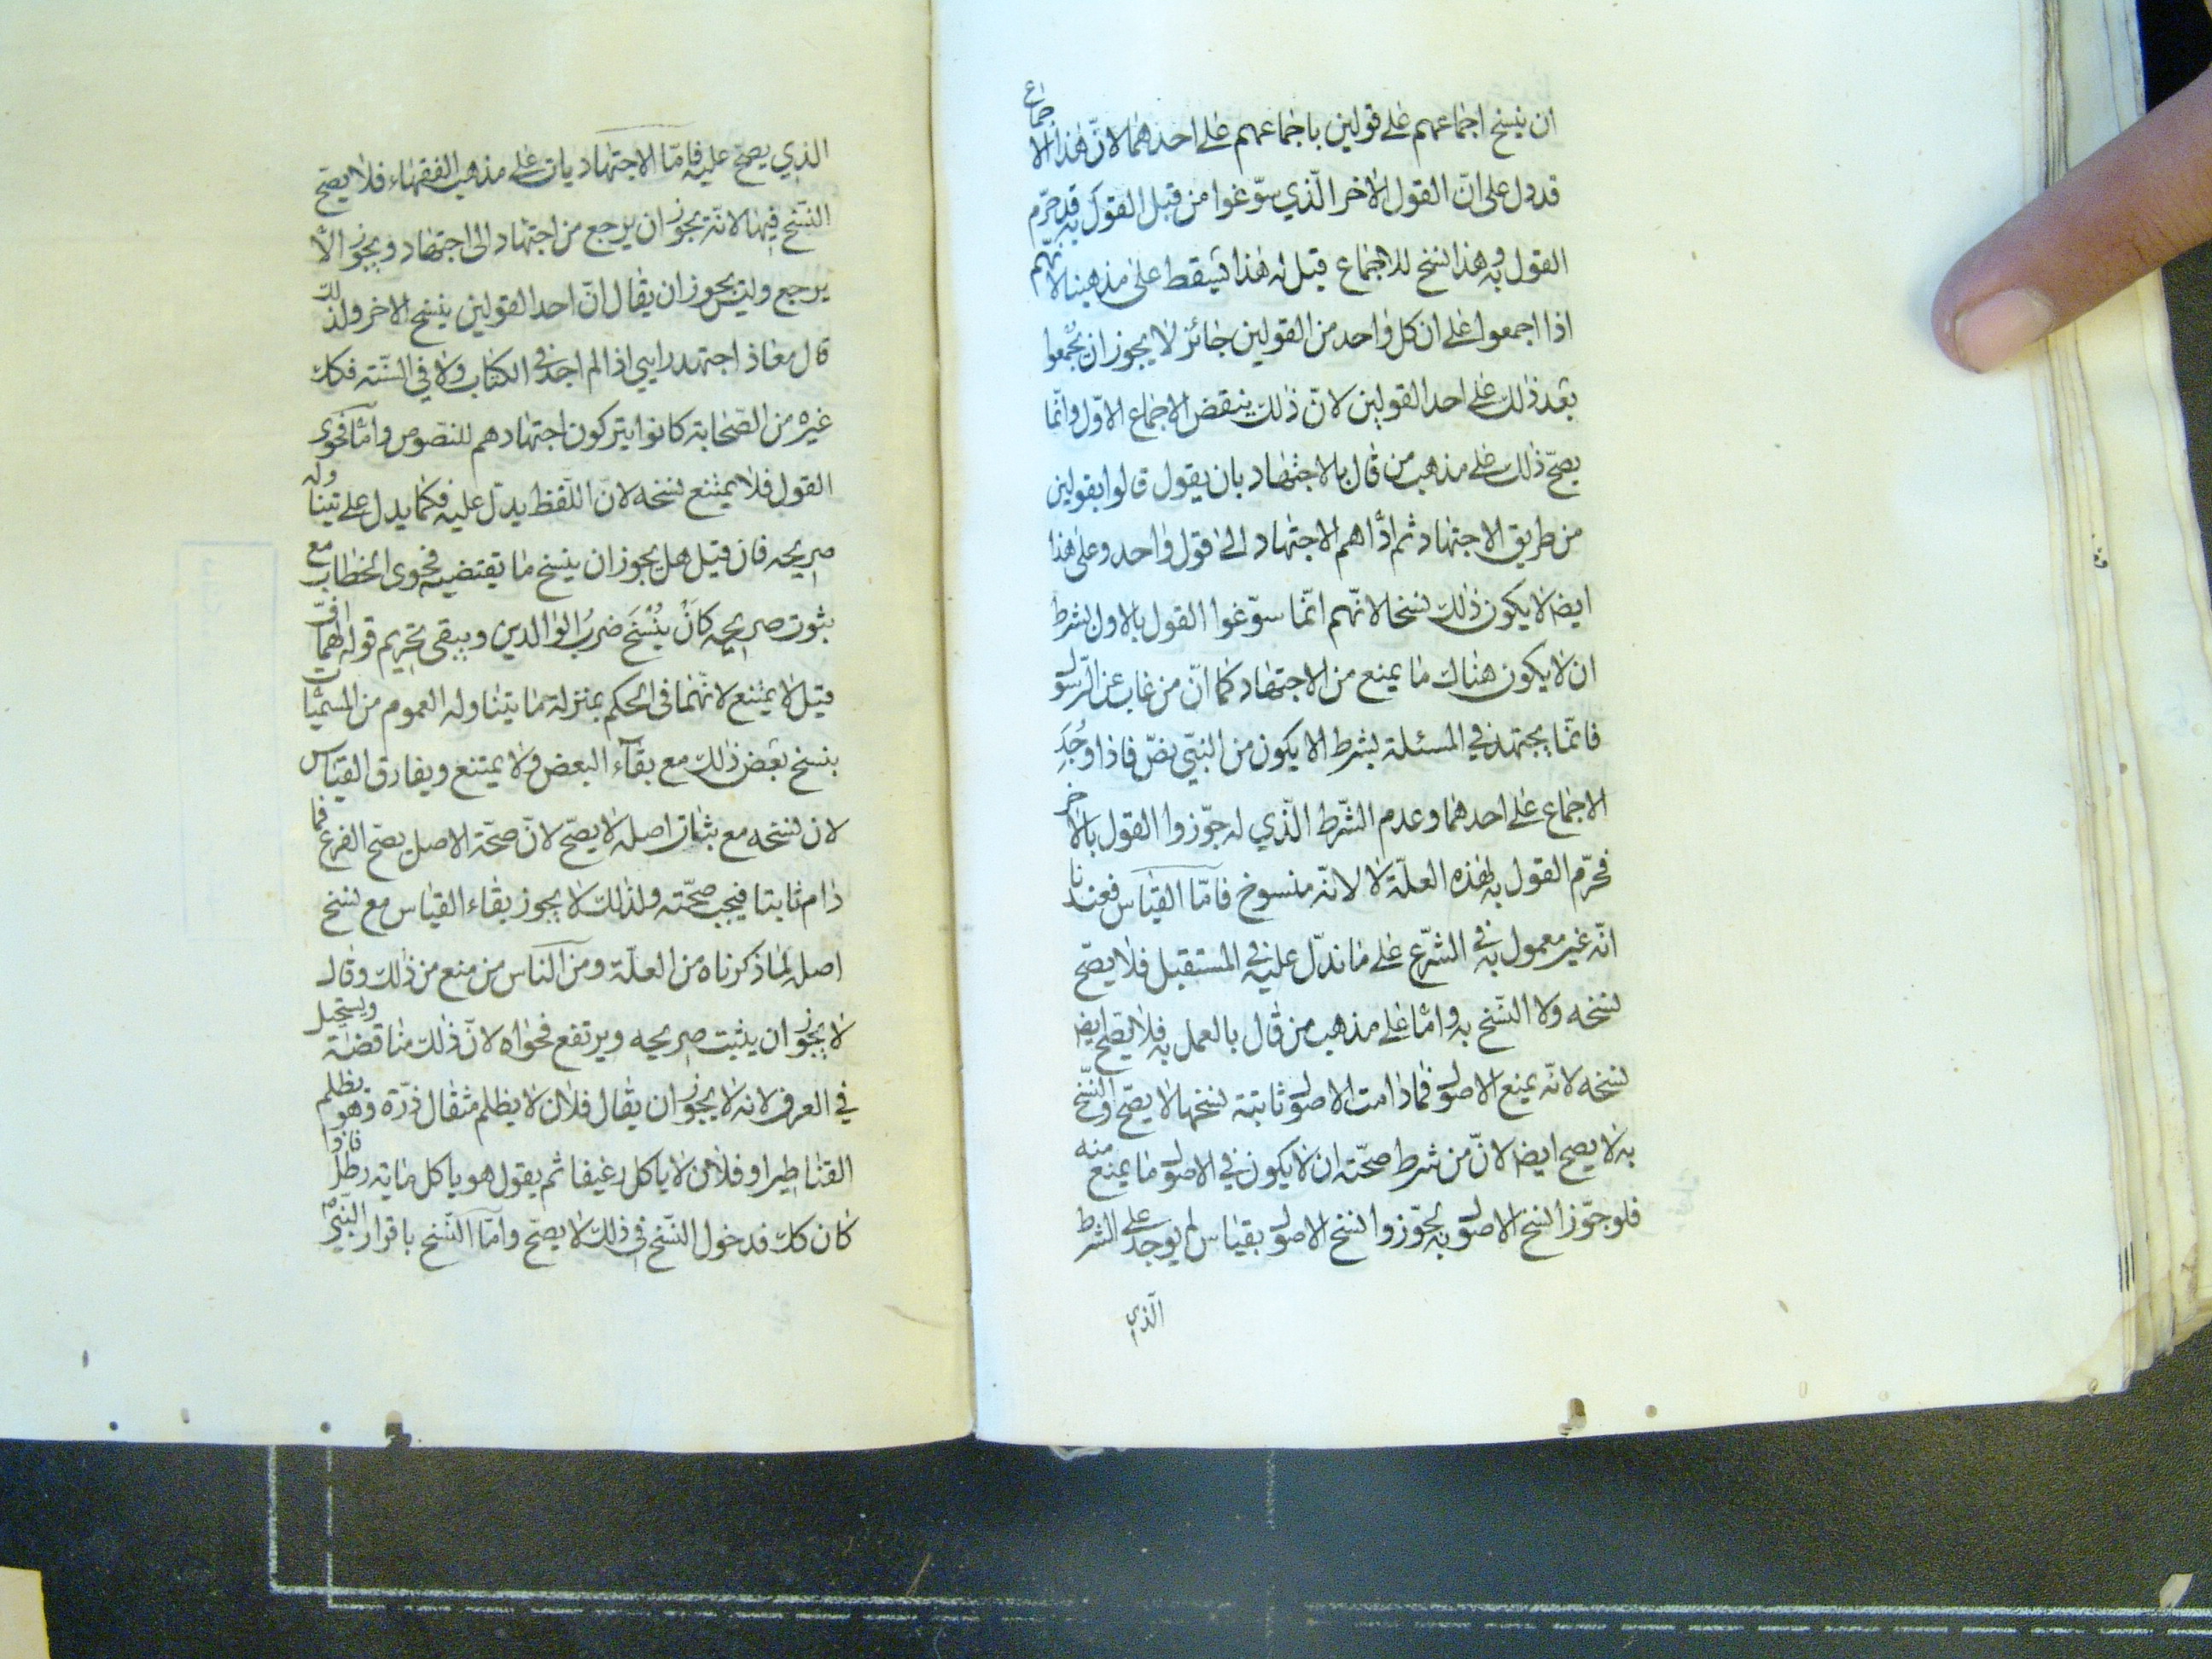 ان ينسخ اجماعهم على قولين باجماعهم على احدهما لانّ هذا الاجماع
قد دل على انّ القول الاخر الّذي سوّغوا من قبل القول به قد حرّم
القول به وهذا نسخ للاجماع قيل له هذا يسقط على مذهبنا لانّهم
اذا اجمعوا على ان كل واحد من القولين جائز لا يجوز ان يُجمعوا
بعد ذلك على احد القولين لانّ ذلك ينقض الاجماع الاوّل وانّما
يصحّ ذلك على مذهب من قال بالاجتهاد بان يقول قالوا بقولين
من طريق الاجتهاد ثم ادّاهم الاجتهاد الى قول واحد وعلى هذا
ايضا لا يكون ذلك نسخا لانّهم انّما سوّغوا القول بالاول بشرط
ان لا يكون هناك ما يمنع من الاجتهاد كما انّ من غاب عن الرّسول
فانّما يجتهد في المسئلة بشرط الا يكون من النبّي نصّ فاذا وُجِدَ
الاجماع على احدهما وعدم الشّرط الّذي له جوّزوا القول بالاخر
فحرّم القول به لهذه العلّة لا لانّه منسوخ فامّا القياس فعندنا
انّه غير معمول به في الشّرع على ما ندّل عليه في المستقبل فلا يصحّ
نسخه ولا النّسخ به وامّا على مذهب من قال بالعمل به فلا يصّح ايضا
نسخه لانّه يمنع الاصول فما دامت الاصول ثابتة نسخها لا يصّح والنّسخ
به لا يصح ايضا لانّ من شرط صحّته ان لا يكون في الاصول ما يمنع منه
فلو جوّز انسخ الاصول به لجوّزوا نسخ الاصول بقياس لم يوجد على الشرط
الّذي
الذي يصحّ عليه فامّا الاجتهاديات على مذهب الفقهاء فلا يصحّ
النّسخ فيها لانّه يجوز ان يرجع من اجتهاد الى اجتهاد ويجوز الّا
يرجع وليس يجوز ان يقال انّ احد القولين ينسخ الاخر ولذلك
قال معاذ اجتهد رايي اذا لم اجد في الكتاب ولا في السّنّة فكك
غيره من الصّحابة كانوا يتركون اجتهادهم للنصّوص وامّا فحوى
القول فلا يمتنع نسخه لانّ اللّفظ يدّل عليه فكما يدل على تيناوله
صريحه فان قيل هل يجوز ان ينسخ ما يقتضيه فحوى الخطاب مع
ثبوت صريحه كَاَنْ يُنْسَخَ ضربُ الوالدين ويبقى تحريم قوله لهما افّ
قيل لا يمتنع لانّهما في الحكم بمنزلة ما يتناوله العموم من المسمّيات
بنسخ بعض ذلك مع بقاء البعض ولا يمتنع ويفارق القياس
لان نسخه مع ثبات اصله لا يصّح لانّ صحّة الاصل يصّح الفرع فما
دام ثابتا فيجب صحّته ولذلك لا يجوز بقاء القياس مع نسخ
اصله لما ذكرناه من العلّة ومن النّاس من منع من ذلك وقال
لا يجوز ان يثبت صريحه ويرتفع فحواه لانّ ذلك مناقضة ويستحيل
في العرف لانه لا يجوز ان يقال فلان لا يظلم مثقال ذرّة وهو يظلم
القناطير او فلان لا ياكل رغيفا ثم يقول هو ياكل ماية رطل فاذا
كان كك فدخول النّسخ في ذلك لا يصّح وامّا النّسخ باقرار النّبيّ